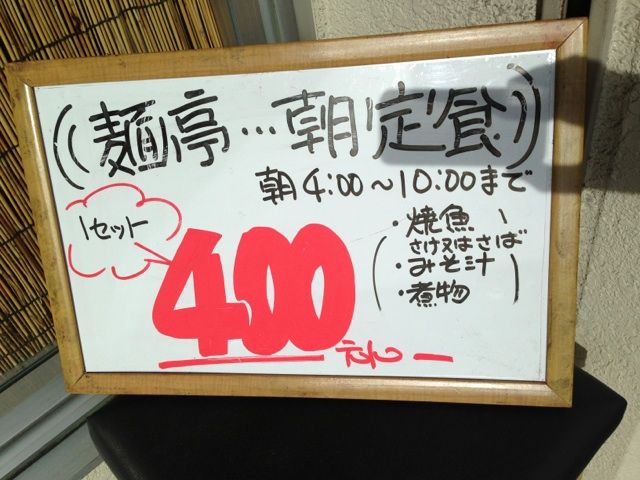 麺亭…朝定食
朝4:00〜10:00まで
1セット
400
・焼魚
さけ又はさば
・みそ汁
・煮物